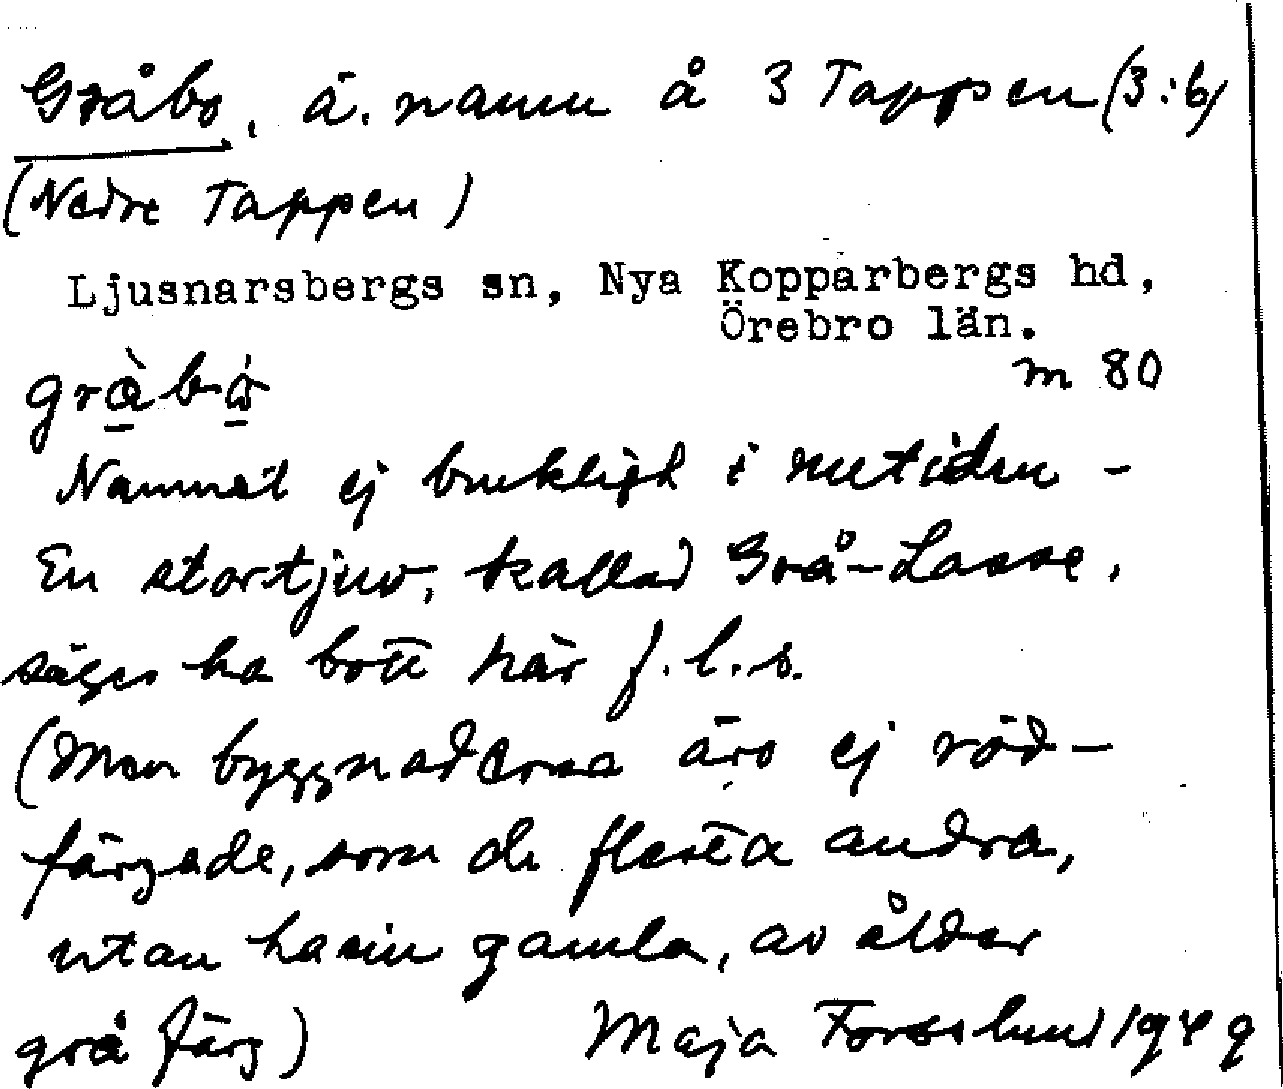 Gråbo, ä. namn å 3 Tappen (3:b)
(Nedre Tappen)
Ljusnarsbergs sn, Nya Kopparbergs hd,
Örebro län.
m 80
Namnet ej brukligt i nutiden -
En stortjuv, kallad Grå-Lasse,
säges ha bott här f.l.s.
(Men byggnaderna äro ej röd-
färgade, som de flesta andra,
utan ha sin gamla, av ålder
grå färg) Maja Forsslund 1949